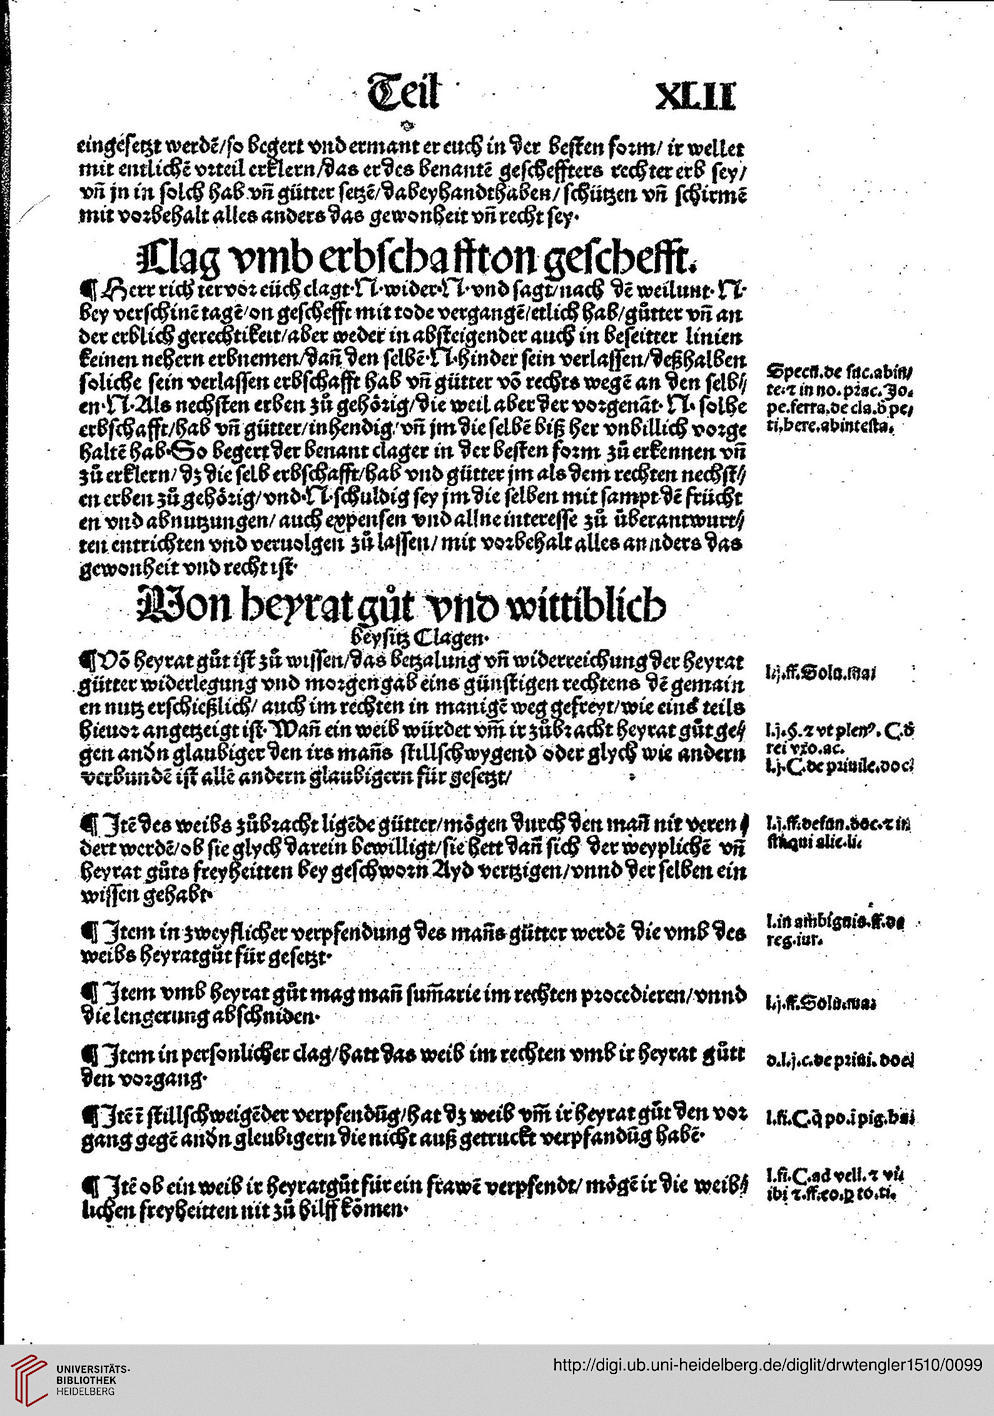 Teil XLII
eingesetzt werdē/so begert vnd ermant er euch in der besten form/ ir wellet
mit entlichē vrteil erklern/das er des benantē gescheffters rechter erb sey/
vn̄ jn in solch hab vn̄ gütter setzē/dabey handthaben/schützen vn̄ schirmē
mit vorbehalt alles anders das gewonheit vn̄ recht sey.
Clag vmb erbschafft on geschefft.
¶ Herr richter vor eüch clagt. N. wider. N. vnd sagt/nach dē weilunt. N.
bey verschinē tagē/on geschefft mit tode vergangē/etlich hab/gůtter vn̄ an
der erblich gerechtikeit/aber weder in absteigender auch in beseitter linien
keinen nehern erbnemen/dan̄ den selbē. N. hinder sein verlassen/deßhalben
soliche sein verlassen erbschafft hab vn̄ gütter vō rechts wegē an den selb//
en. N. Als nechsten erben zů gehörig/die weil aber der vorgenāt. N. solhe
erbschafft/hab vn̄ gütter/inhendig/vn̄ jm die selbē biß her vnbillich vorge
haltē hab. So begert der benant clager in der besten form zů erkennen vn̄
zů erklern/dz die selb erbschafft/hab vnd gütter jm als dem rechten nechst//
en erben zů gehörig/vnd. N. schuldig sey jm die selben mit sampt dē frücht
en vnd abnutzungen/ auch expensen vnd all ne interesse zů überantwurt//
ten entrichten vnd veruolgen zů lassen/ mit vorbehalt alles an nders das
gewonheit vnd recht ist.
Von heyrat gůt vnd wittiblich
beysitz Clagen.
¶ Vō heyrat gůt ist zů wissen/das betzalung vn̄ widerreichung der heyrat
gütter widerlegung vnd morgengab eins günstigen rechtens dē gemain
en nutz erschießlich/ auch im rechten in manigē weg gefreyt/wie eins teils
hieuor angetzeigt ist. Wan̄ ein weib würdet vm̄ ir zůbracht heyrat gůt ge//
gen andn glaubiger den irs man̄s stillschwygend oder glych wie andern
verbundē ist allē andern glaubigern für gesetzt/
¶ Itē des weibs zůbracht ligēde gütter/mögen durch den man̄ nit veren/
dert werdē/ob sie glych darein bewilligt/sie hett dan̄ sich der weyplichē vn̄
heyrat gůts freyheitten bey geschworn Ayd vertzigen/vnnd der selben ein
wissen gehabt.
¶ Item in zweyflicher verpfendung des man̄s gütter werdē die vmb des
weibs heyratgůt für gesetzt.
¶ Item vmb heyrat gůt mag man̄ sum̄arie im rechten procedieren/vnnd
die lengerung abschniden.
¶ Item in personlicher clag/hatt das weib im rechten vmb ir heyrat gůtt
den vorgang.
¶ Itē ī stillschweigēder verpfendūg/hat dz weib vm̄ ir heyrat gůt den vor
gang gegē andn gleubigern die nicht auß getruckt verpfandūg habē.
¶ Itē ob ein weib ir heyratgůt für ein frawē verpfendt/ mögē ir die weib//
lichen freyheitten nit zů hilff kōmen.
Specu. de suc. abin/
te. ⁊ in no. prac. Jo.
pe. ferra. de cla. ð pe/
ti. here. abintesta.
l. j. ff. Solu. mai
l. j. §. ⁊ vt plen⁹. C. ð
rei vxo. ac.
l. j. C. de priuile. doci
l. in ambiguis. ff. de
reg. iur.
l. j. ff. Solu. mai
d. l. j. c. de priui. doci
l. fi. C. ad vell. ⁊ vij
ibi ⁊. ff. eo. p to. ti.
UNIVERSITÄTS-
BIBLIOTHEK
HEIDELBERG
http://digi.ub.uni-heidelberg.de/diglit/drwtengler1510/0099